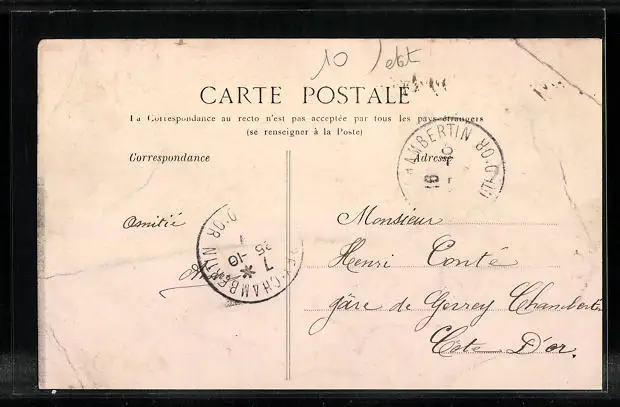 10 etat
CARTE POSTALE
La Correspondance au recto n'est pas acceptée par tous les pays étrangers
(se renseigner à la Poste)
Correspondance
Adresse
CHAMBERTIN
Amitié
CHAMBERTIN
7
25 -10
Monsieur
Henri Conté
gare de Gevrey Chambertin
Côte D'or.